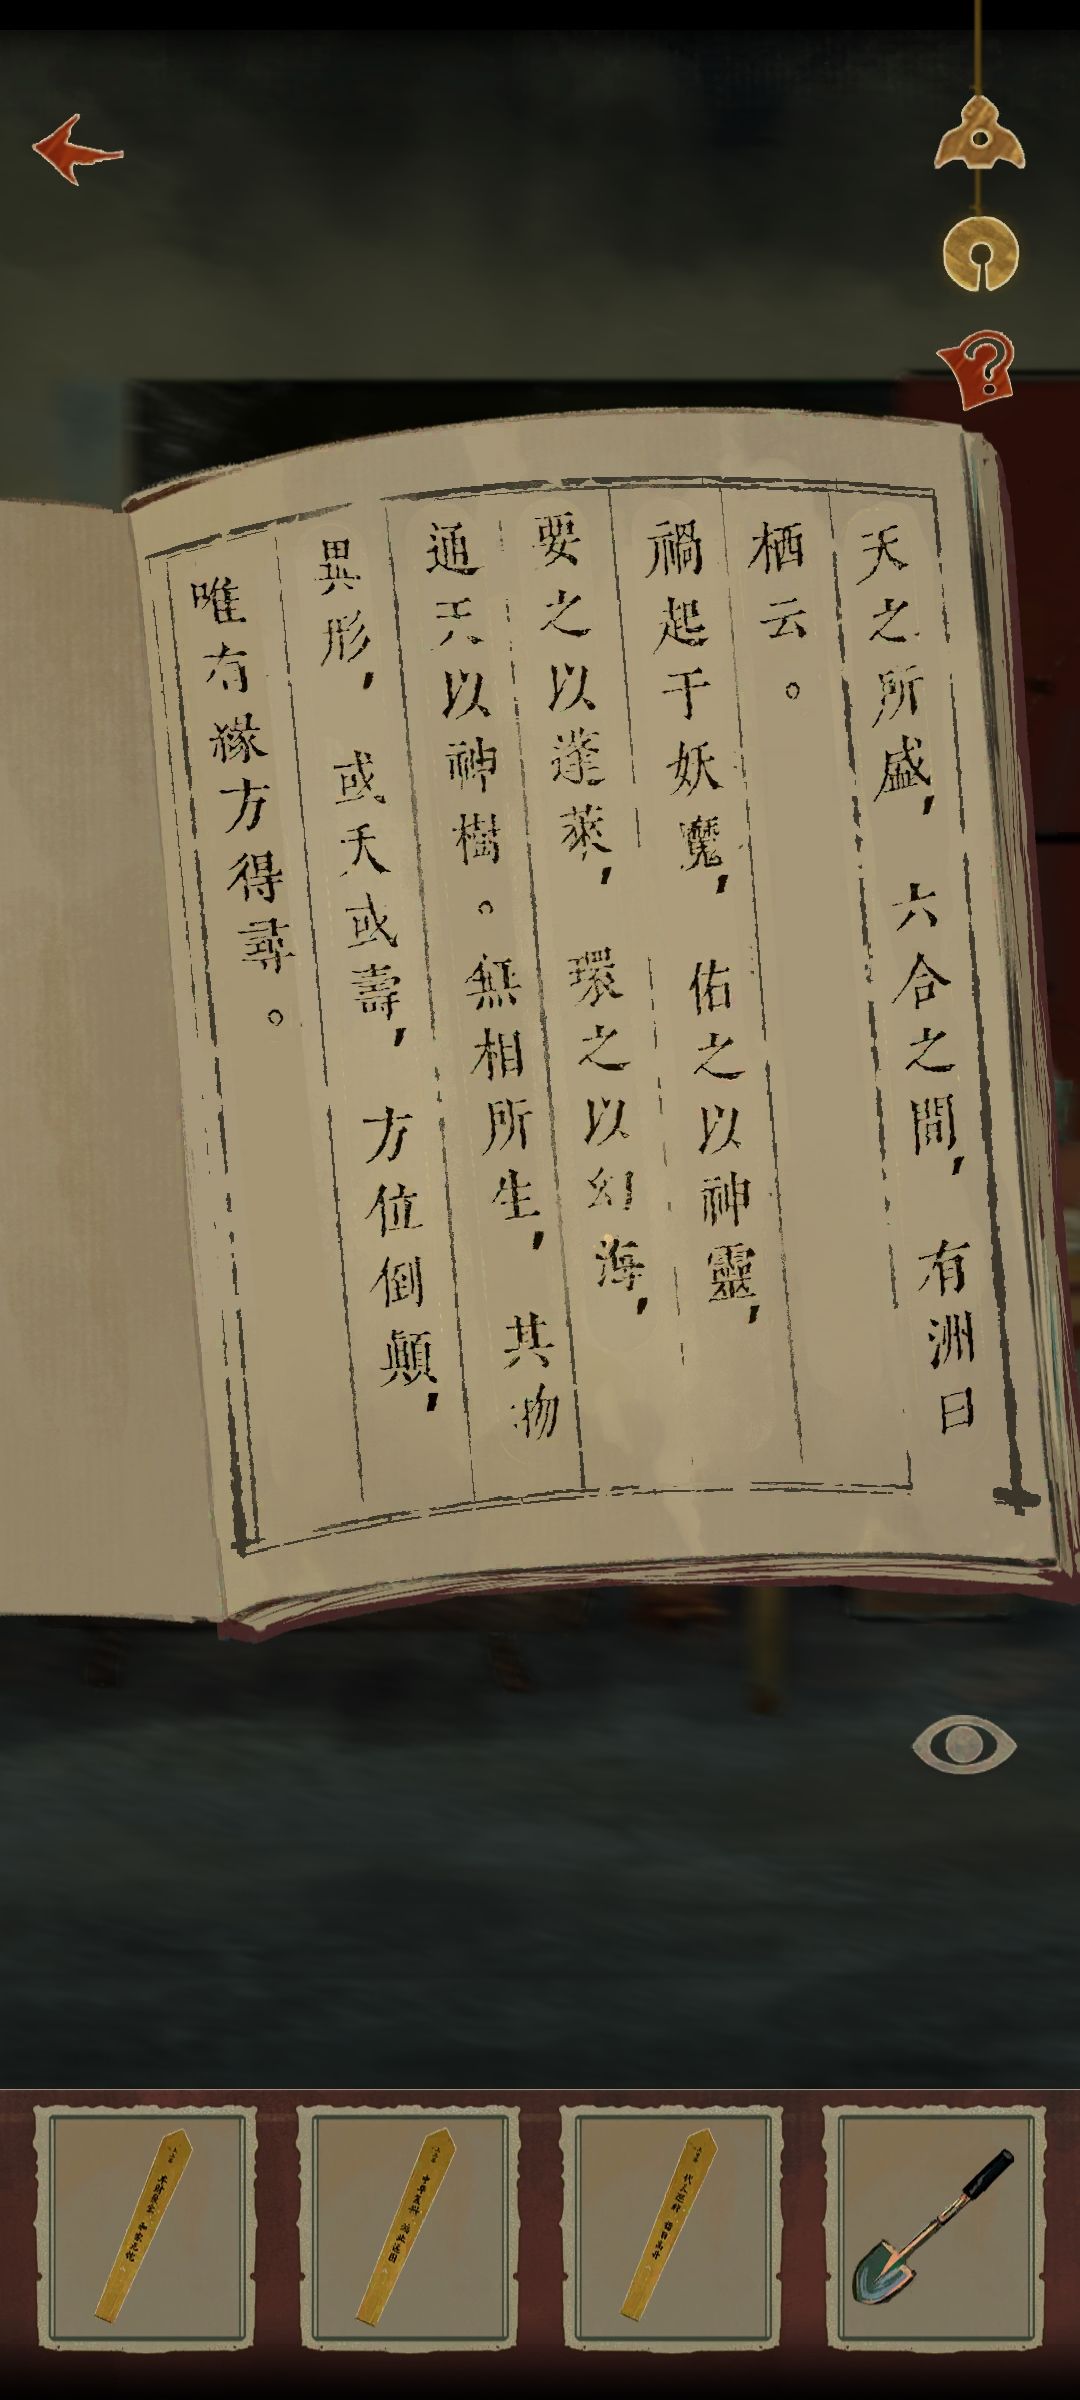 天之所盛，六合之間，有洲日
栖云。
禍起于妖魔，佑之以神靈，
要之以蓬萊，環之以幻海，
通天以神樹。無相所生，其物
異形，或夭或壽，方位倒顛，
唯有緣方得尋。